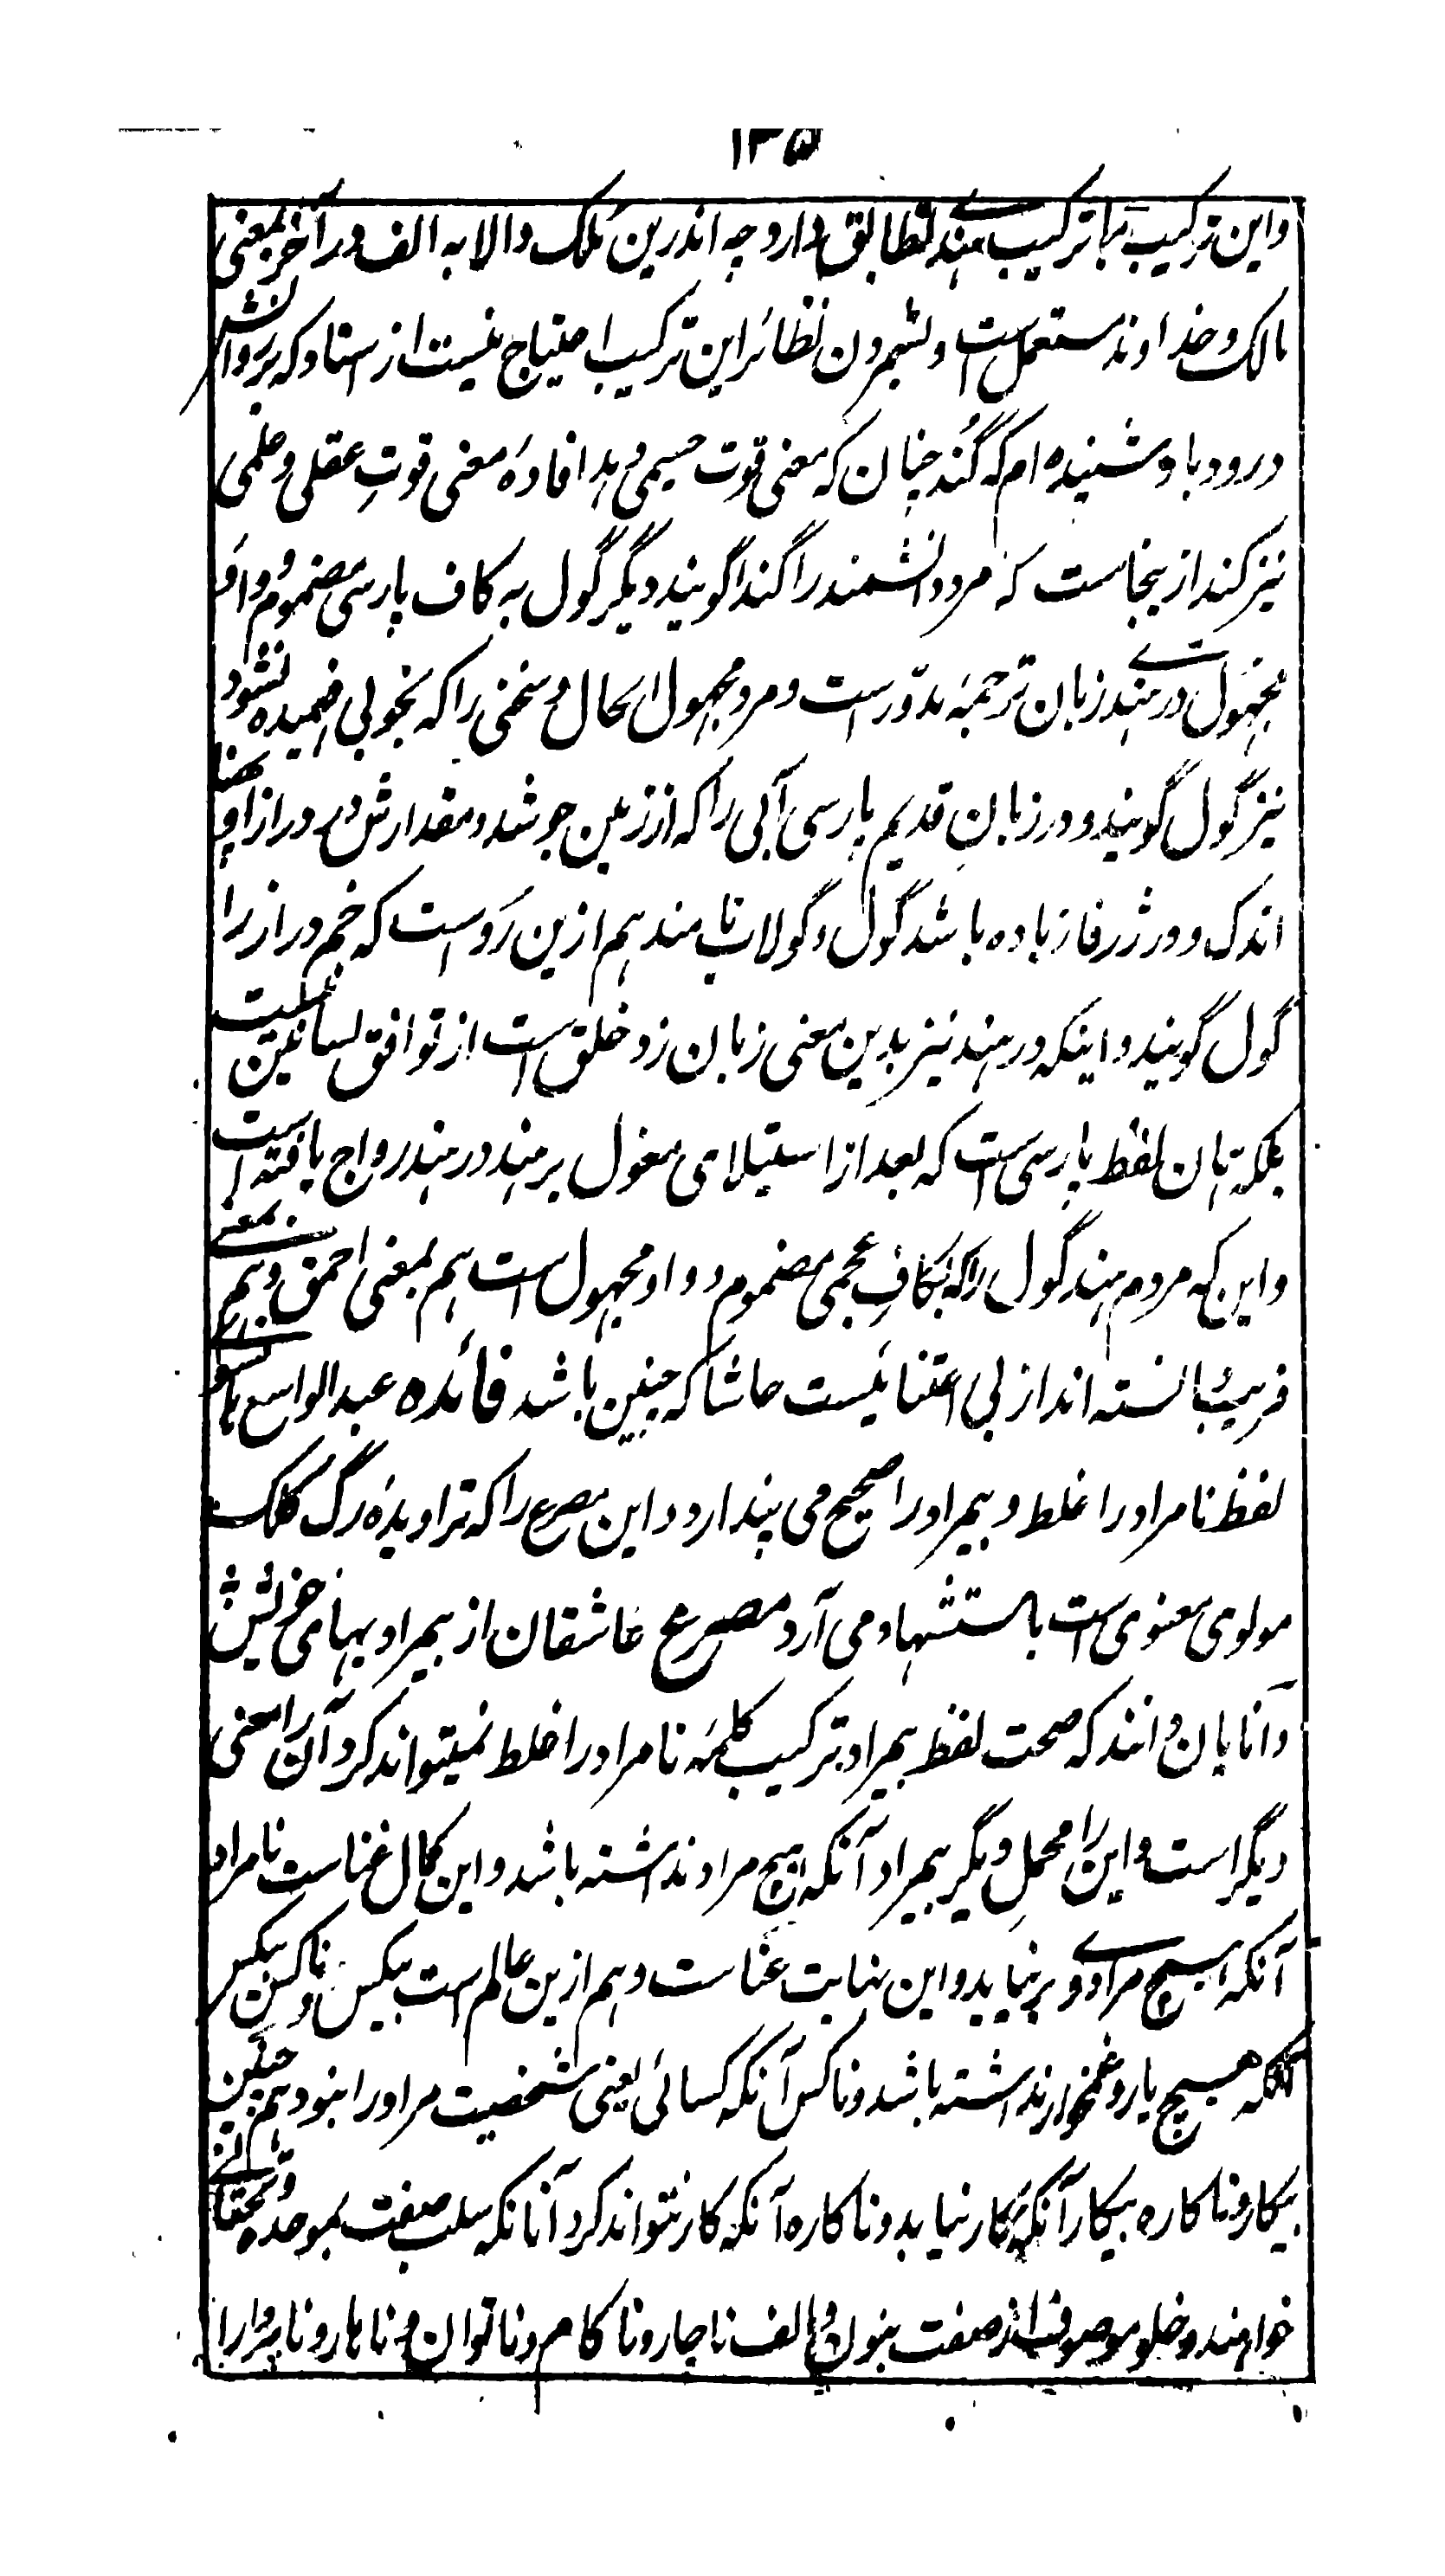 ۱۳۵
واین ترکیب با ترکیب هندی تطابق دارد چه اندرین ملک والا به الف در آخر بمعنی
مالک و خداوند مستعمل است و بشمردن نظائر این ترکیب احتیاج نیست از استاد که بر روانش
درود باد شنیده ام که گُند چنان که معنی قوت جسمی میدهد افادهٔ معنی قوتِ عقلی و علمی
نیز کند ازینجاست که مرد دانشمند را گندا گویند دیگر گول به کاف پارسی مضموم و واو
مجهول در هندی زبان ترجمهٔ مدوّر است و مرد مجهول الحال و سخنی را که بخوبی فهمیده نشود
نیز گول گویند و در زبانِ قدیم پارسی آبی را که از زمین جوشد و مقدارش در درازا و پهنا
اندک و در ژرفا زیاده باشد گول و گولاب نامند هم ازین رَوست که خم دراز را
گول گویند و اینکه در هند نیز بدین معنی زبان زد خلق است از توافق لسانین نیست
بلکه همان لفظ پارسی است که بعد از استیلای مغول بر هند در هند رواج یافته است
و این که مردم هند گول را که بکافِ عجمی مضموم و واو مجهول است هم بمعنی احمق و هم بمعنی
فریب دانسته اند از بی اعتنائیست حاشا که چنین باشد فائده عبدالواسع هانسوی
لفظ نامراد را غلط و بیمراد را صحیح می پندارد و این مصرع را که تراویدهٔ رگ کلک
مولوی معنوی است باستشهاد می آرد مصرع عاشقان از بیمرادیهای خویش
دانایان دانند که صحت لفظ بیمراد ترکیب کلمهٔ نامراد را غلط نمیتواند کرد آن را معنی
دیگر است و این را محملِ دیگر بیمراد آنکه هیچ مراد نداشته باشد و این کمال غناست نامراد
آنکه هیچ مرادی وی برنیاید و این نهایت عناست و هم ازین عالم است بیکس و ناکس بیکس
آنکه هیچ یار و غمخوار نداشته باشد و ناکس آنکه کسائی یعنی شخصیت مر او را نبود هم چنین
بیکار و ناکاره بیکار آنکه بکار نیاید و ناکاره آنکه کار نتواند کرد آنانکه سلب صفت بموحده و تحتانی
خواهند و خلو موصوف از صفت بنون و الف ناچار و ناکام و ناتوان و ناهار و ناپروا را